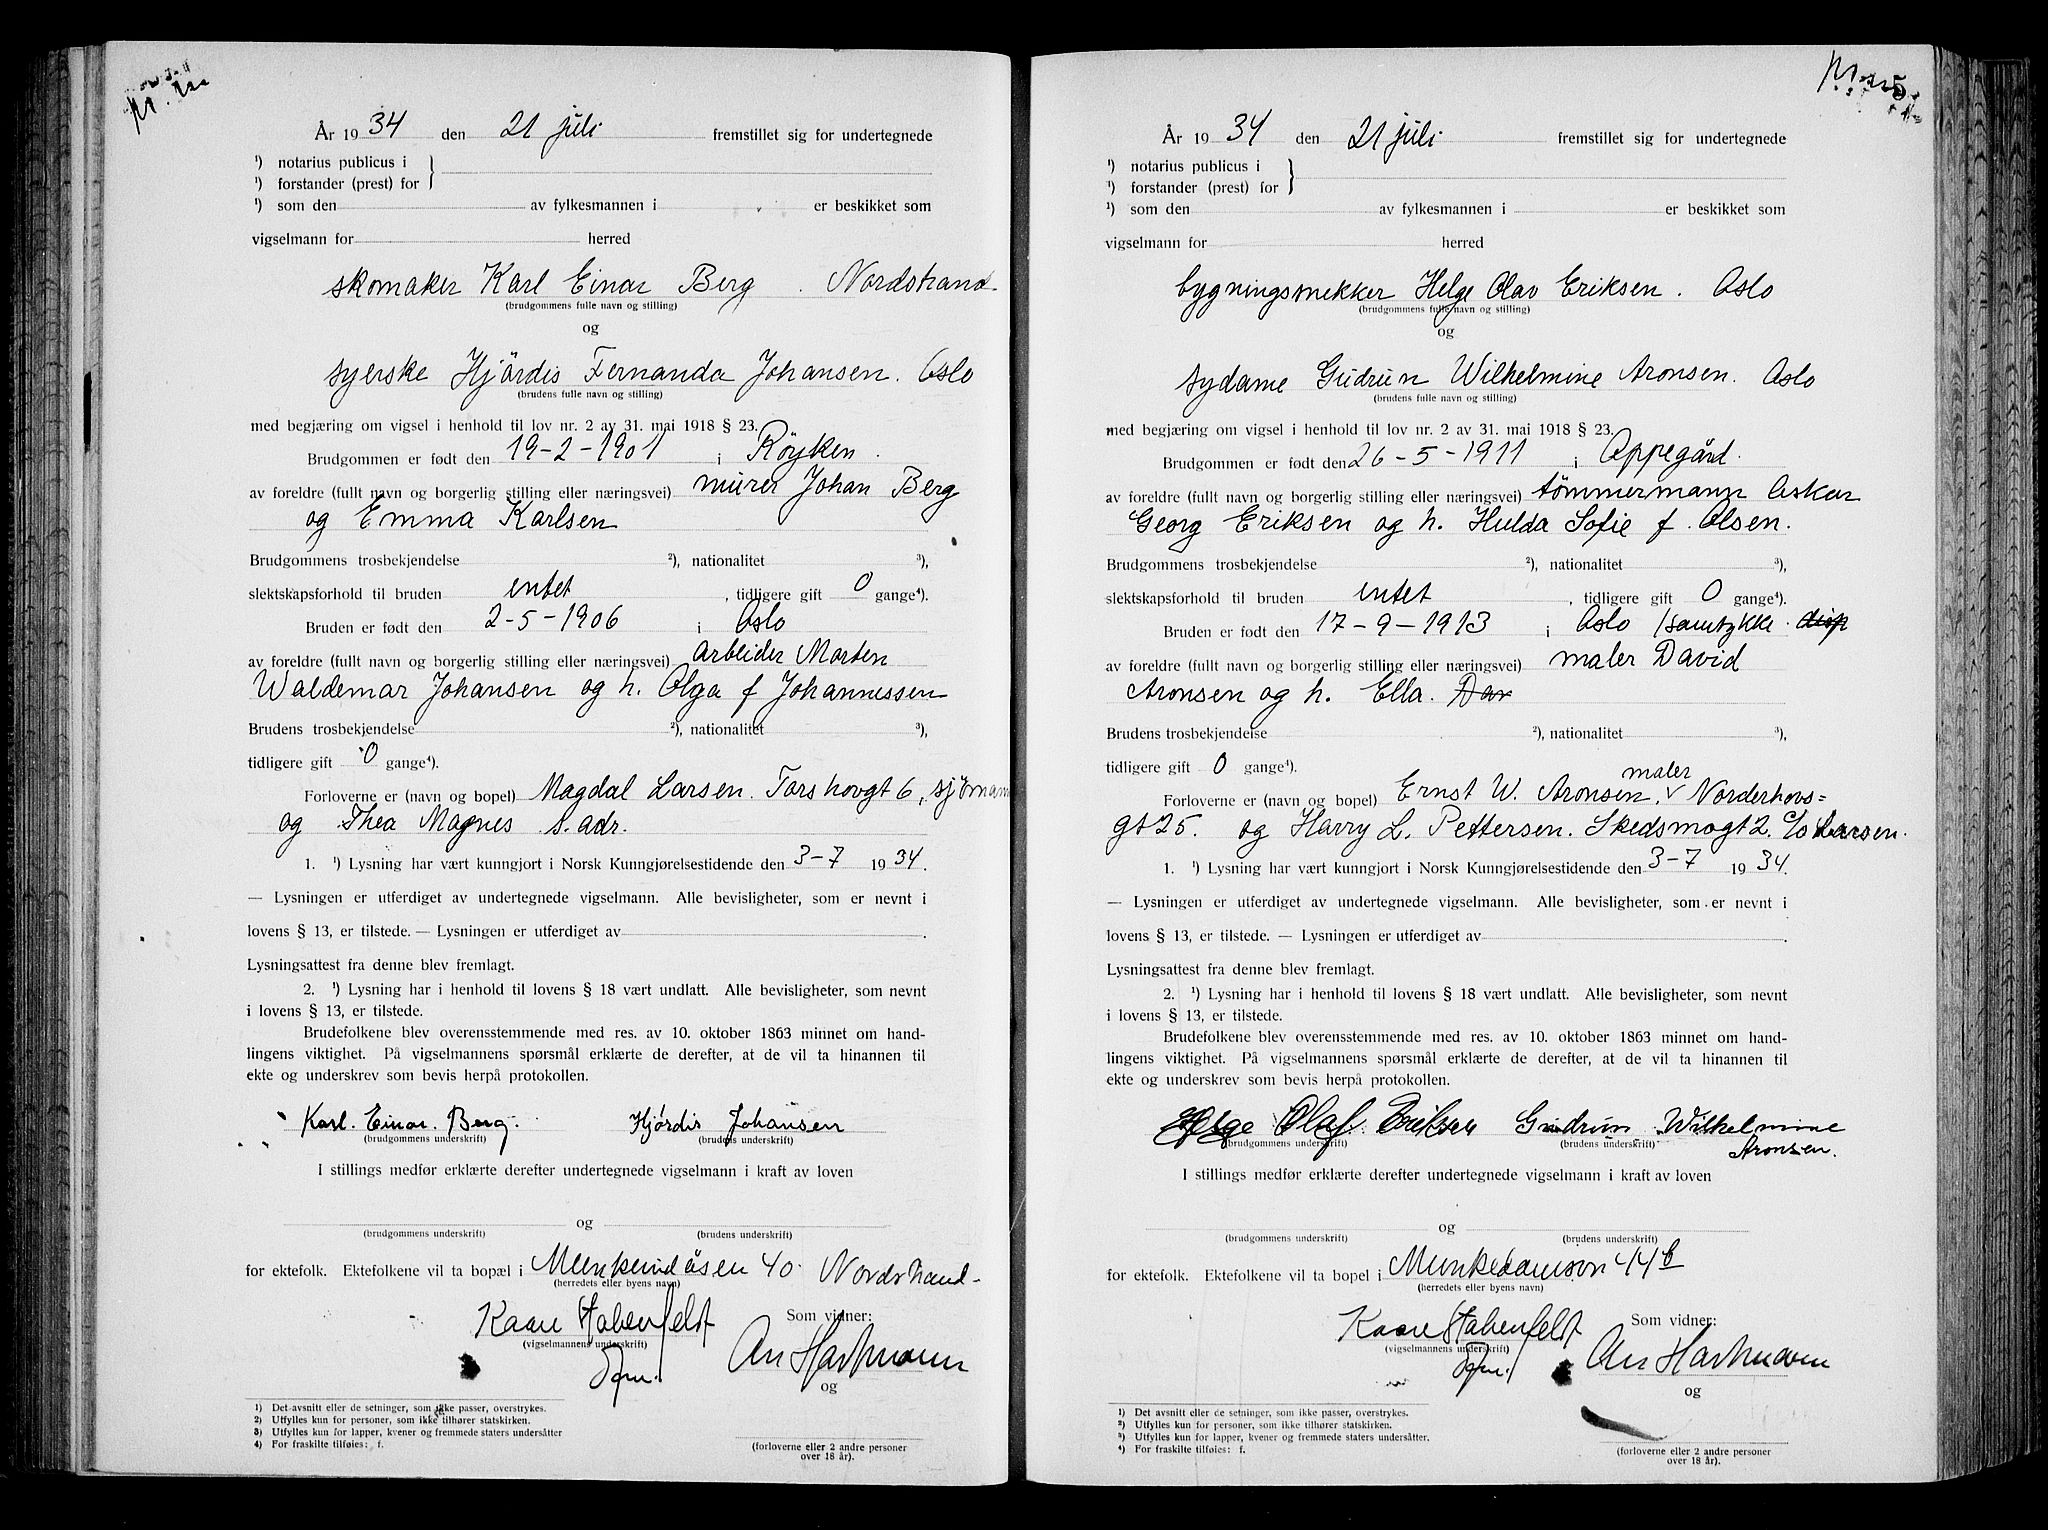 År 1934 den 21 juli fremstillet sig for undertegnede
¹) notarius publicus i
¹) forstander (prest) for
¹) som den av fylkesmannen i er beskikket som
vigselmann for herred
skomaker Karl Einar Berg. Nordstrand.
(brudgommens fulle navn og stilling)
og
syerske Hjördis Fernanda Johansen. Oslo
(brudens fulle navn og stilling)
med begjæring om vigsel i henhold til lov nr. 2 av 31. mai 1918 § 23.
Brudgommen er født den 19-2-1901 i Röyken.
av foreldre (fullt navn og borgerlig stilling eller næringsvei) murer Johan Berg
og Emma Karlsen
Brudgommens trosbekjendelse ²), nationalitet ³),
slektskapsforhold til bruden intet, tidligere gift 0 gange⁴).
Bruden er født den 2-5-1906 i Oslo
av foreldre (fullt navn og borgerlig stilling eller næringsvei) arbeider Morten
Waldemar Johansen og h. Olga f Johannessen
Brudens trosbekjendelse ²), nationalitet ³),
tidligere gift 0 gange⁴).
Forloverne er (navn og bopel) Magdal Larsen. Torshovgt 6, sjömann
og Thea Magnes s. adr.
1. ¹) Lysning har vært kunngjort i Norsk Kunngjørelsestidende den 3-7 1934.
— Lysningen er utferdiget av undertegnede vigselmann. Alle bevisligheter, som er nevnt i
lovens § 13, er tilstede. — Lysningen er utferdiget av .
Lysningsattest fra denne blev fremlagt.
2. ¹) Lysning har i henhold til lovens § 18 vært undlatt. Alle bevisligheter, som nevnt
i lovens § 13, er tilstede.
Brudefolkene blev overensstemmende med res. av 10. oktober 1863 minnet om hand-
lingens viktighet. På vigselmannens spørsmål erklærte de derefter, at de vil ta hinannen til
ekte og underskrev som bevis herpå protokollen.
Karl. Einar. Berg. Hjördis Johansen
(brudgommens underskrift) (brudens underskrift)
I stillings medfør erklærte derefter undertegnede vigselmann i kraft av loven
og
(brudgommens underskrift) (brudens underskrift)
for ektefolk. Ektefolkene vil ta bopæl i Munkerudåsen 40. Nordstrand.
(herredets eller byens navn)
Kaare Habenfeldt Som vidner:
(vigselmannens underskrift)
Dfm. An Hartmann
og
1) Det avsnitt eller de setninger, som ikke passer, overstrykes.
2) Utfylles kun for personer, som ikke tilhører statskirken.
3) Utfylles kun for lapper, kvener og fremmede staters undersåtter
4) For fraskilte tilføies: f.
(forloverne eller 2 andre personer
over 18 år).
5
År 1934 den 21 juli fremstillet sig for undertegnede
¹) notarius publicus i
¹) forstander (prest) for
¹) som den av fylkesmannen i er beskikket som
vigselmann for herred
bygningssnekker Helge Olav Eriksen. Oslo
(brudgommens fulle navn og stilling)
og
sydame Gudrun Wilhelmine Aronsen. Oslo
(brudens fulle navn og stilling)
med begjæring om vigsel i henhold til lov nr. 2 av 31. mai 1918 § 23.
Brudgommen er født den 26-5-1911 i Oppegård.
av foreldre (fullt navn og borgerlig stilling eller næringsvei) tömmermann Oskar
Georg Eriksen og h. Hulda Sofie f. Olsen.
Brudgommens trosbekjendelse ²), nationalitet ³),
slektskapsforhold til bruden intet, tidligere gift 0 gange⁴).
Bruden er født den 17-9-1913 i Oslo /samtykke. disp
av foreldre (fullt navn og borgerlig stilling eller næringsvei) maler David
Aronsen og h. Ella. Dav
Brudens trosbekjendelse ²), nationalitet ³),
tidligere gift 0 gange⁴). maler
Forloverne er (navn og bopel) Ernst W. Aronsen, Norderhovs=
gt 25. og Harry L. Pettersen. Skedsmogt 2. c/o Larsen.
1. ¹) Lysning har vært kunngjort i Norsk Kunngjørelsestidende den 3-7 1934.
— Lysningen er utferdiget av undertegnede vigselmann. Alle bevisligheter, som er nevnt i
lovens § 13, er tilstede. — Lysningen er utferdiget av .
Lysningsattest fra denne blev fremlagt.
2. ¹) Lysning har i henhold til lovens § 18 vært undlatt. Alle bevisligheter, som nevnt
i lovens § 13, er tilstede.
Brudefolkene blev overensstemmende med res. av 10. oktober 1863 minnet om hand-
lingens viktighet. På vigselmannens spørsmål erklærte de derefter, at de vil ta hinannen til
ekte og underskrev som bevis herpå protokollen.
Helge Olaf Eriksen Gudrun Wilhelmine
(brudgommens underskrift) (brudens underskrift) Aronsen.
I stillings medfør erklærte derefter undertegnede vigselmann i kraft av loven
og
(brudgommens underskrift) (brudens underskrift)
for ektefolk. Ektefolkene vil ta bopel i Munkedamsvn 44 b
(herredets eller byens navn)
Kaare Habenfeldt Som vidner:
(vigselmannens underskrift)
Dfm. An Hartmann
og
1) Det avsnitt eller de setninger, som ikke passer, overstrykes.
2) Utfylles kun for personer, som ikke tilhører statskirken.
3) Utfylles kun for lapper, kvener og fremmede staters undersåtter.
4) For fraskilte tilføies: f.
(forloverne eller 2 andre personer
over 18 år).